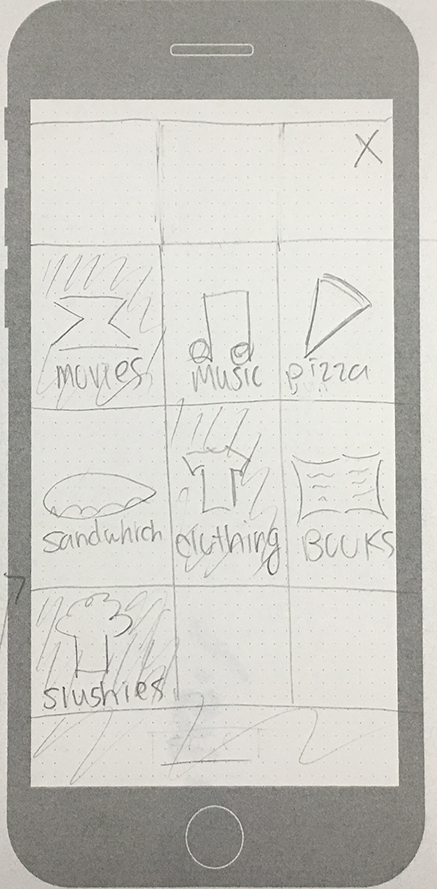 X
movies
Music
pizza
sandwhich
clothing
BOOKS
slushies